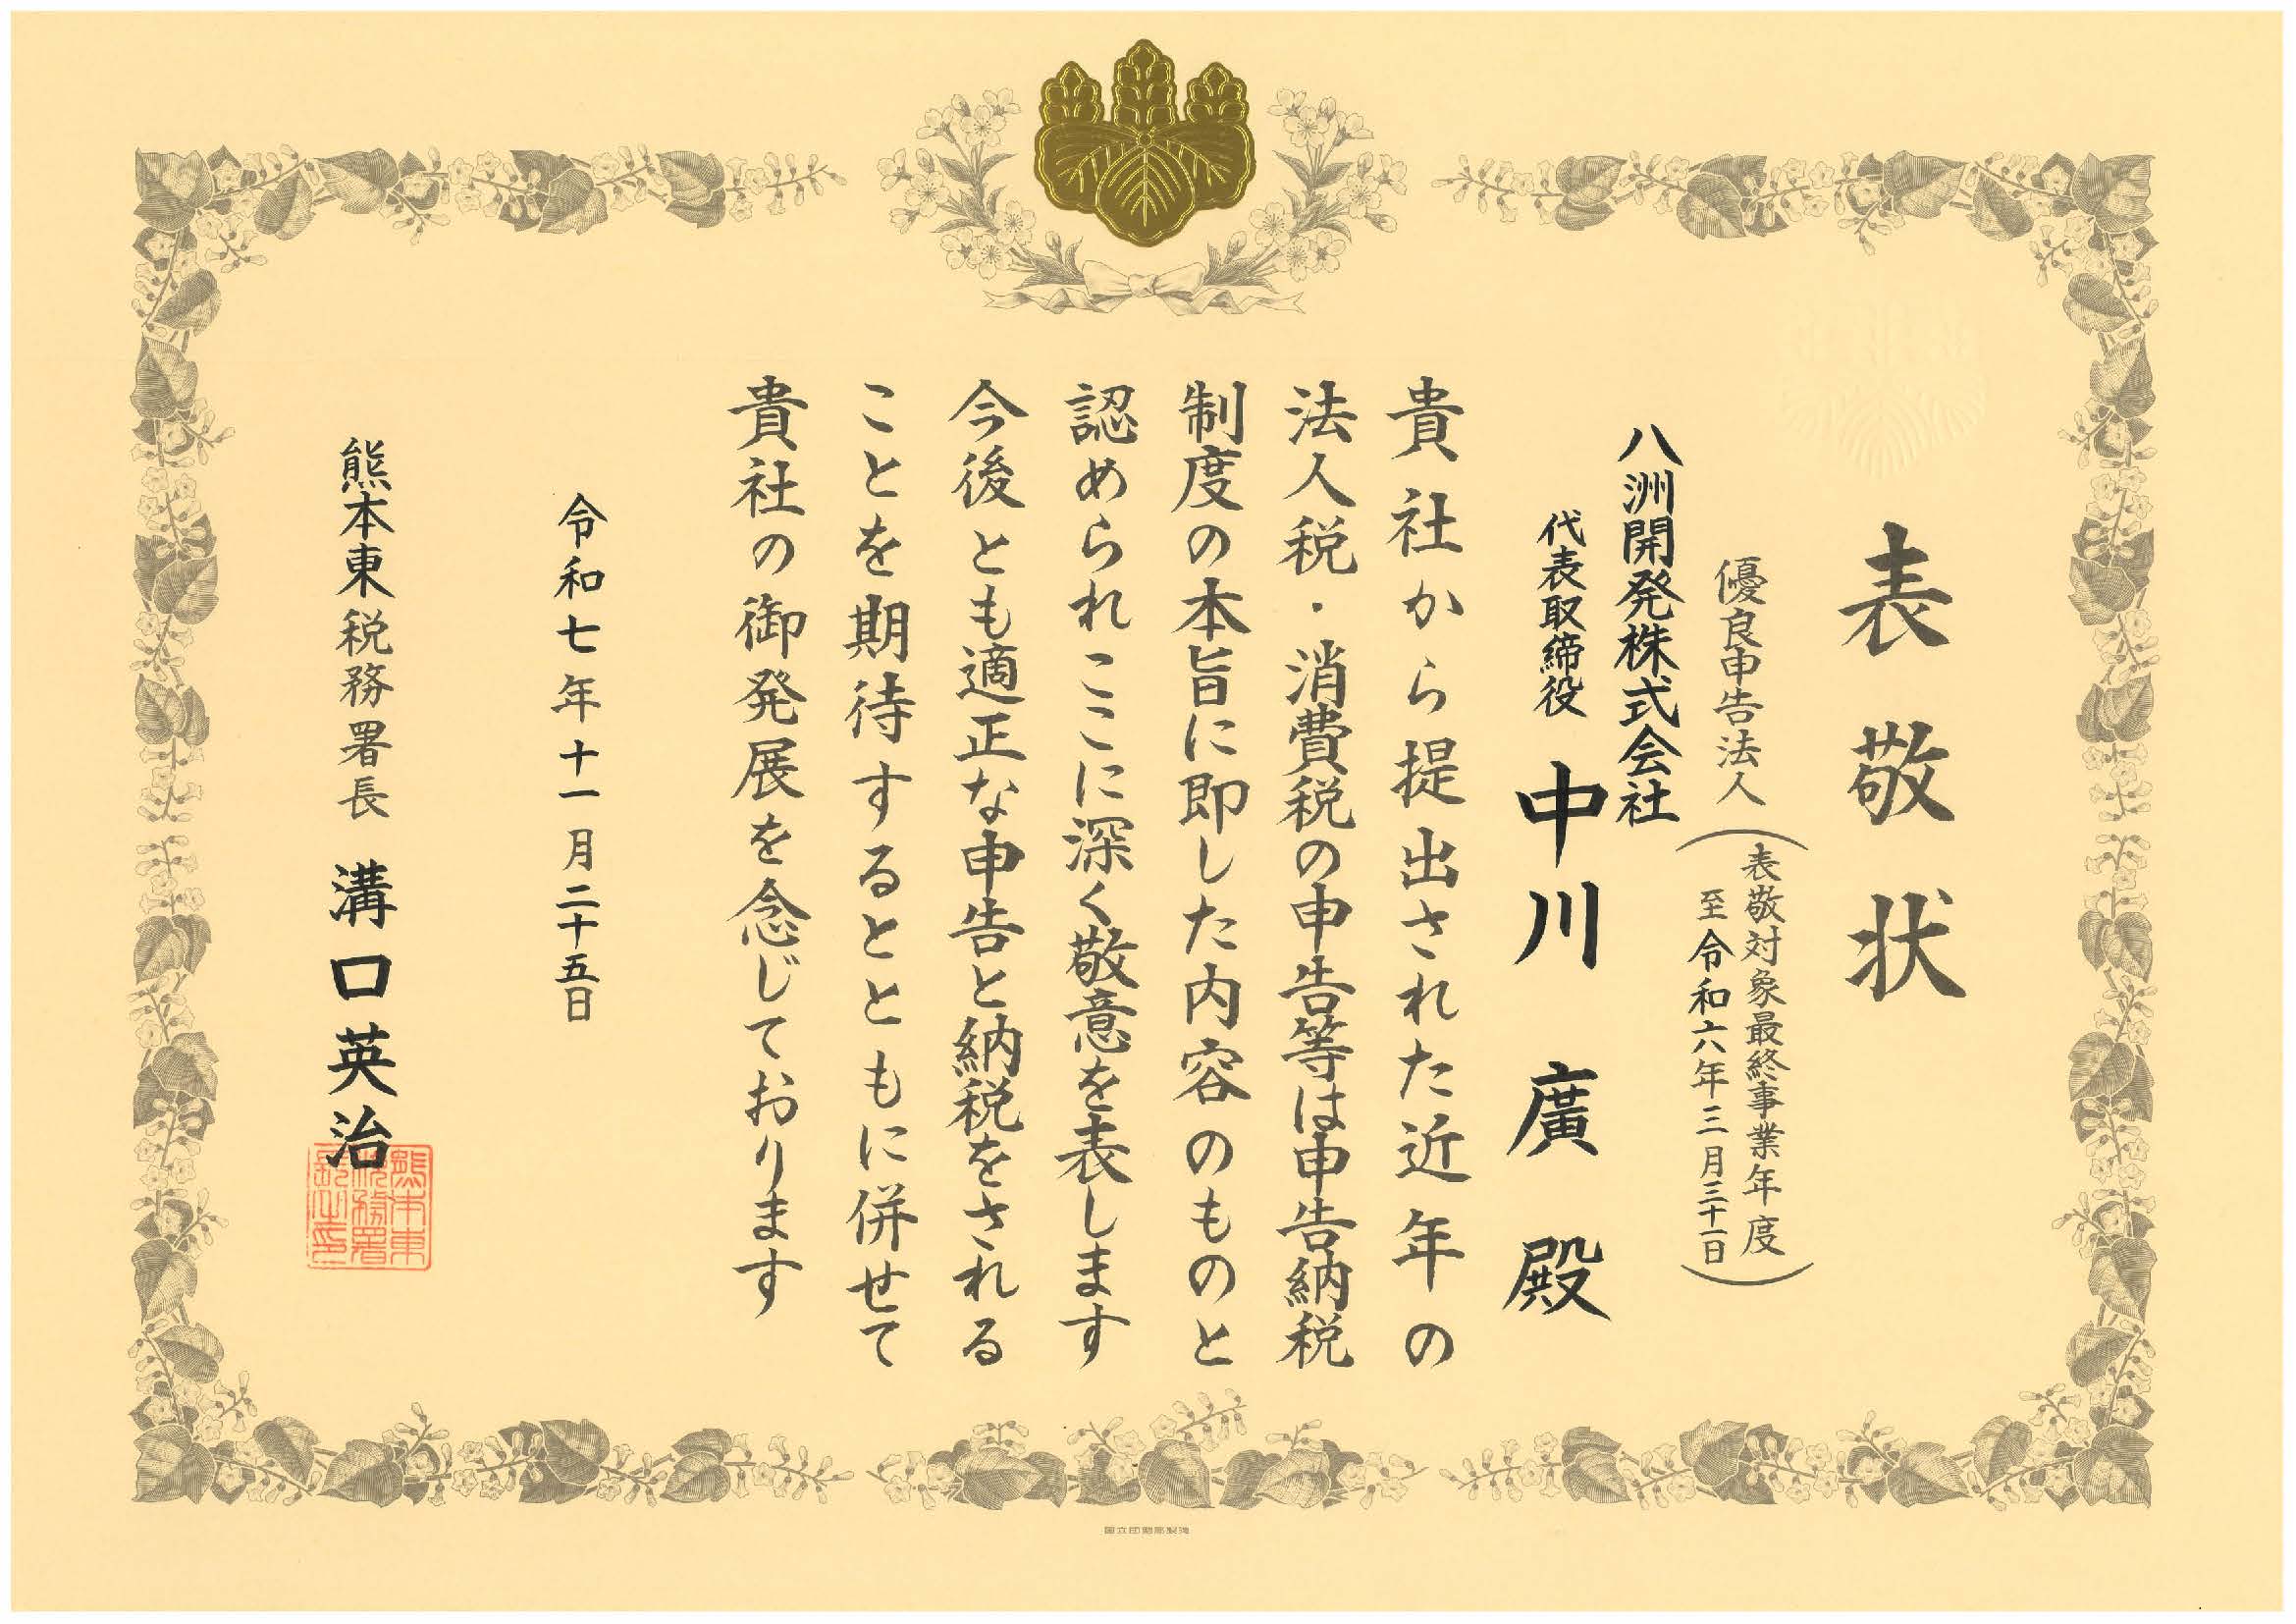 表敬状
優良申告法人
（表敬対象最終事業年度
至令和六年三月三十一日）
八洲開発株式会社
代表取締役 中川 廣 殿
貴社から提出された近年の
法人税・消費税の申告等は申告納税
制度の本旨に即した内容のものと
認められここに深く敬意を表します
今後とも適正な申告と納税をされる
ことを期待するとともに併せて
貴社の御発展を念じております
令和七年十一月二十五日
熊本東税務署長 溝口英治
熊本東
税務署
長之印
国立印刷局製造